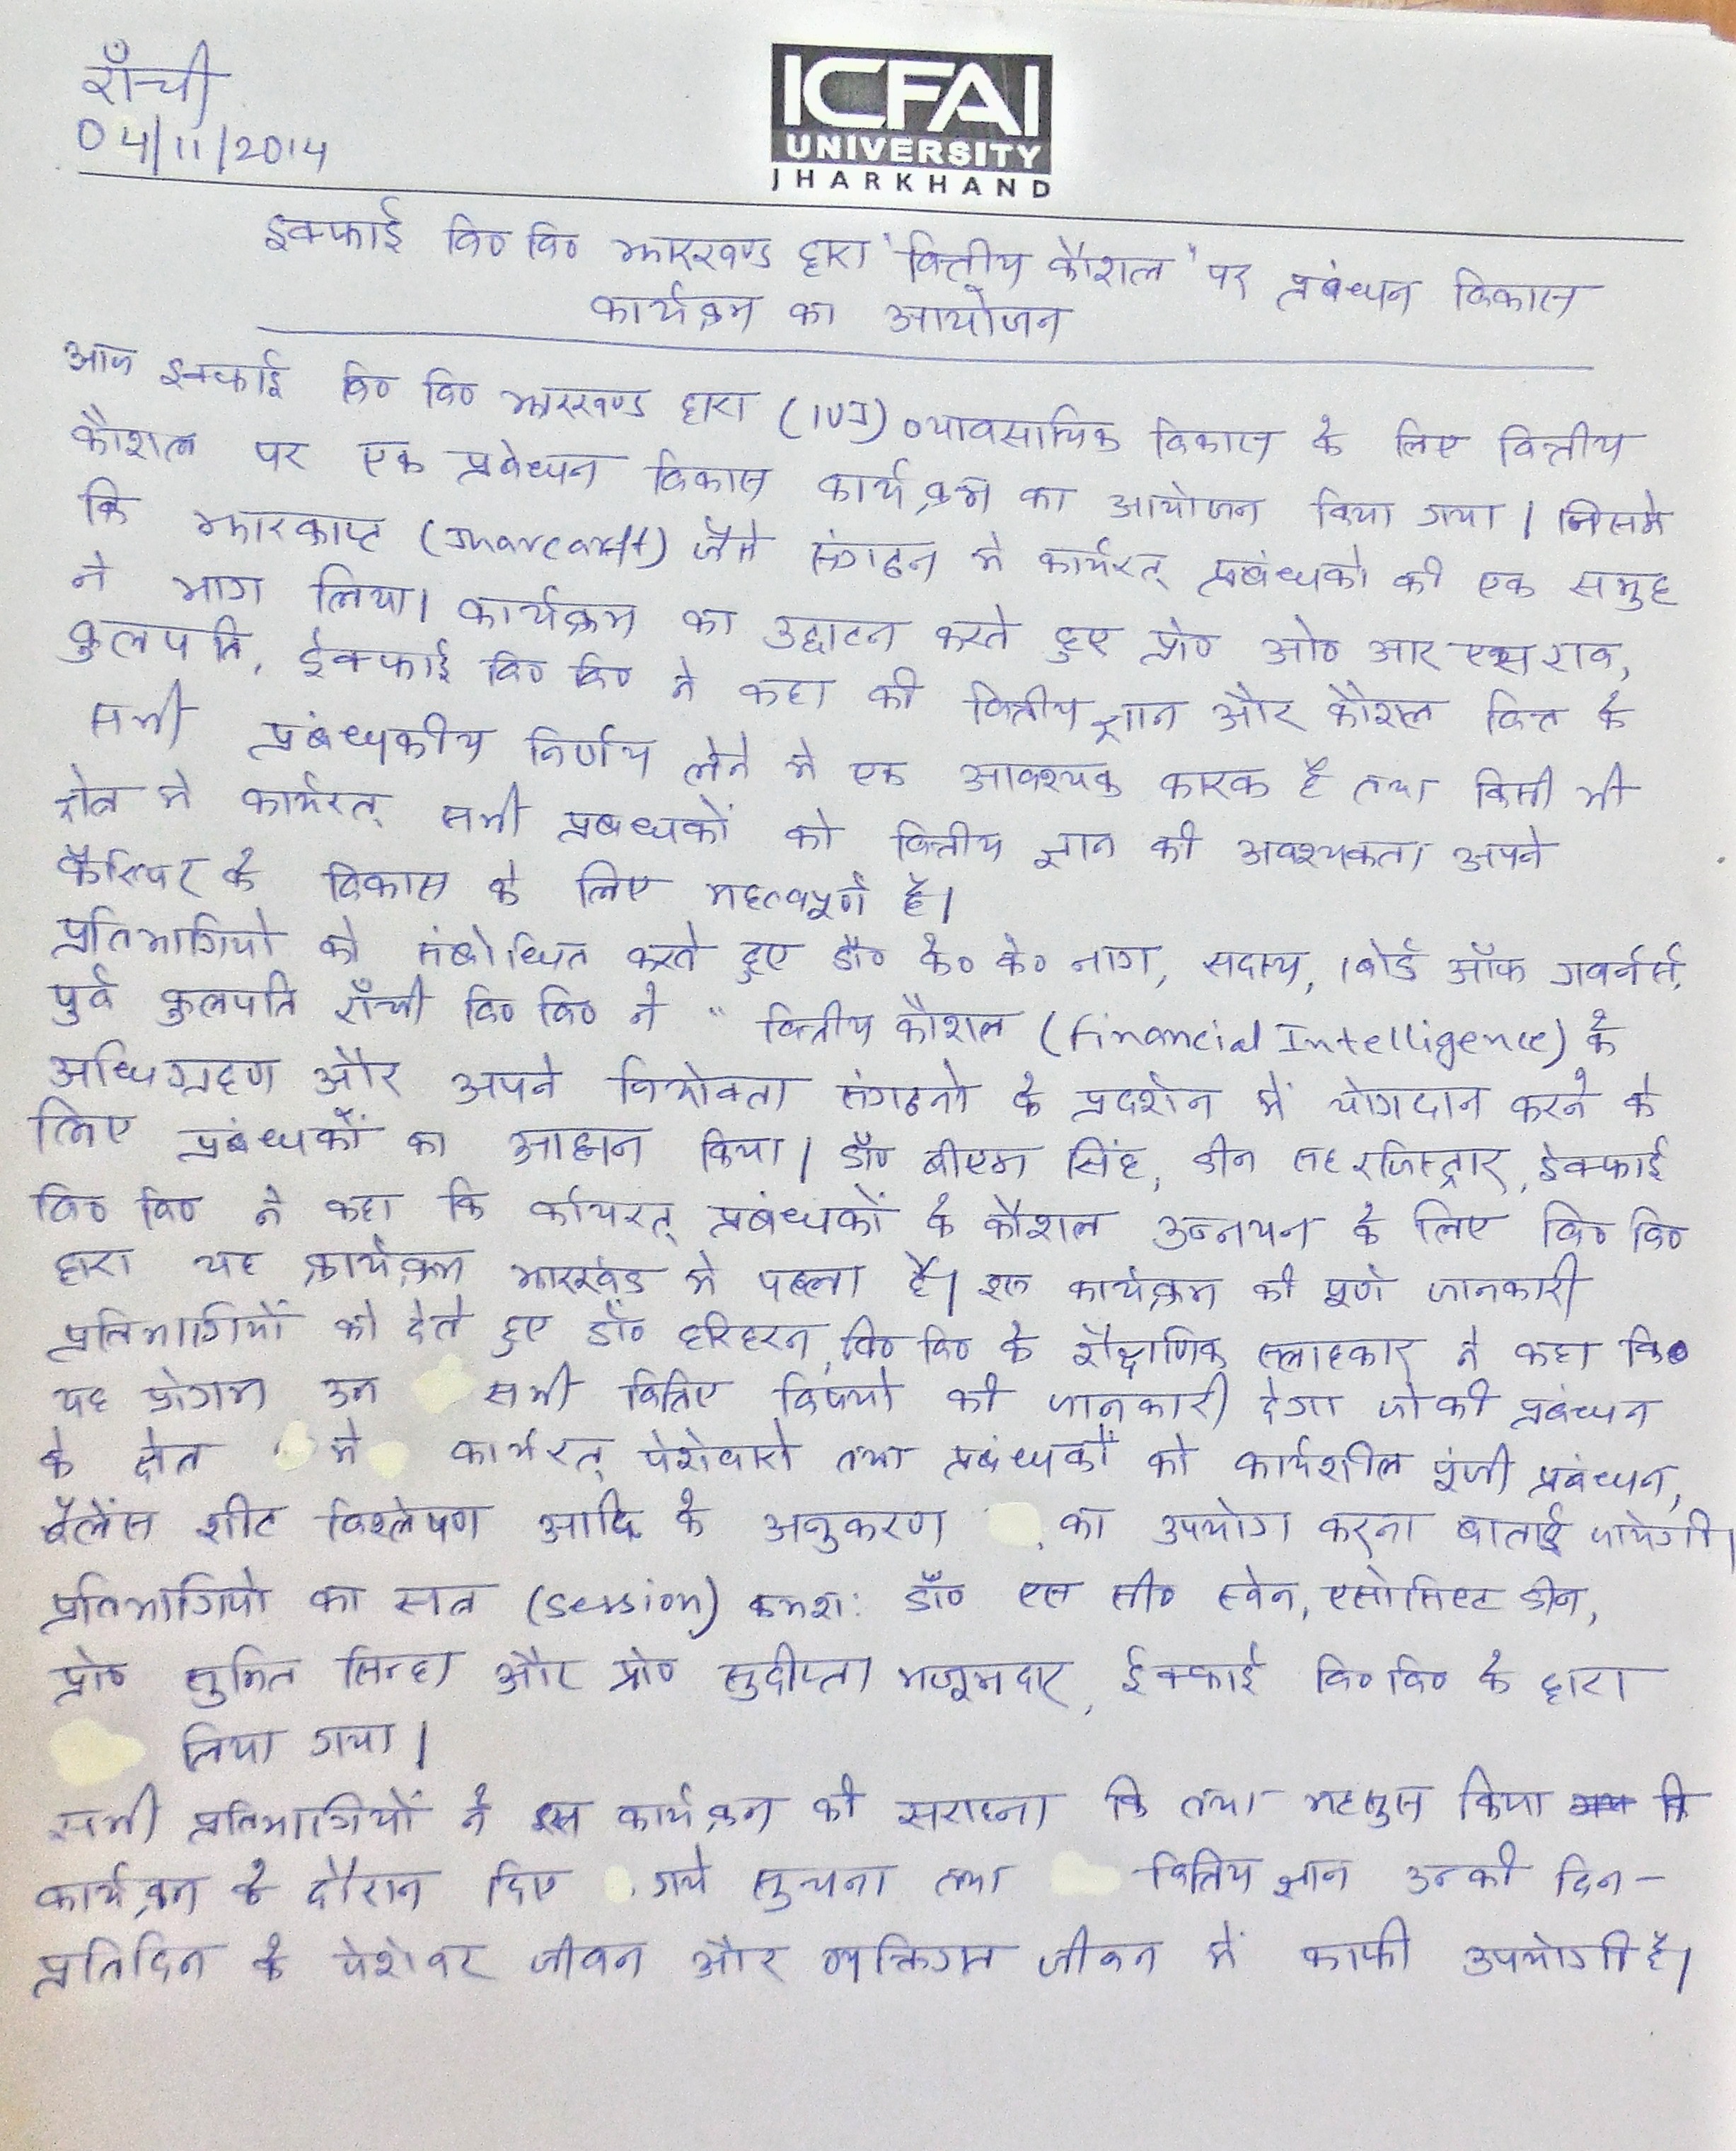 राँची
04/11/2014
ICFAI
UNIVERSITY
JHARKHAND
इक्फाई वि० वि० झारखण्ड द्वारा "वित्तीय कौशल" पर प्रबंधन विकास
कार्यक्रम का आयोजन
आज इक्फाई वि० वि० झारखण्ड द्वारा (IUJ) व्यावसायिक विकास के लिए वित्तीय
कौशल पर एक प्रबंधन विकास कार्यक्रम का आयोजन किया गया। जिसमे
कि झारक्राप्ट (Jharcraft) जैसे संगठन मे कार्यरत् प्रबंधको की एक समुह
ने भाग लिया। कार्यक्रम का उद्घाटन करते हुए प्रो० ओ० आर एस राव,
कुलपति, ईक्फाई वि० वि० ने कहा की वित्तीय ज्ञान और कौशल वित्त के
सभी प्रबंधकीय निर्णय लेने मे एक आवश्यक कारक है तथा किसी भी
क्षेत्र मे कार्यरत् सभी प्रबंधकों को वित्तीय ज्ञान की अवश्यकता अपने
कैरियर के विकास के लिए महत्वपूर्ण है।
प्रतिभागियो को संबोधित करते हुए डॉ० के० के० नाग, सदस्य, बोर्ड ऑफ गवर्नर्स,
पुर्व कुलपति राँची वि० वि० ने " वित्तीय कौशल (Financial Intelligence) के
अधिग्रहण और अपने नियोक्ता संगठनो के प्रदर्शन में योगदान करने के
लिए प्रबंधकों का आह्वान किया। डॉ० बीएम सिंह, डीन सह रजिस्ट्रार, ईक्फाई
वि० वि० ने कहा कि कार्यरत् प्रबंधकों के कौशल उन्नयन के लिए वि० वि०
द्वारा यह कार्यक्रम झारखंड मे पहला है। इस कार्यक्रम की पूर्ण जानकारी
प्रतिभागियों को देते हुए डॉ० हरिहरन, वि० वि० के शैक्षणिक सलाहकार ने कहा कि
यह प्रोगाम उन सभी वित्तिए विषयो की जानकारी देगा जोकी प्रबंधन
के क्षेत्र मे कार्यरत् पेशेवारो तथा प्रबंधकों को कार्यशील पूंजी प्रबंधन,
बैलेंस शीट विश्लेषण आदि के अनुकरण का उपयोग करना बाताई जायेगी।
प्रतिभागियो का सत्र (Session) क्रमश: डॉ० एस सी० स्वेन, एसोसिएट डीन,
प्रो० सुमित सिन्हा और प्रो० सुदीप्ता मजूमदार, ईक्फाई वि० वि० के द्वारा
लिया गया।
सभी प्रतिभागियों ने इस कार्यक्रम की सराहना कि तथा महसुस किया कि
कार्यक्रम के दौरान दिए गये सुचना तथा वित्तिय ज्ञान उनकी दिन-
प्रतिदिन के पेशेवर जीवन और व्यक्तिगत जीवन में काफी उपयोगी है।